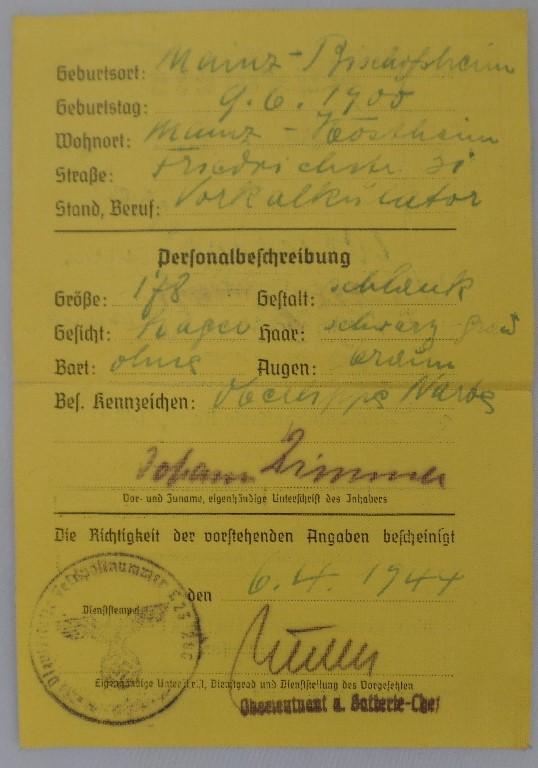 Geburtsort: Mainz-Bischofsheim
Geburtstag: 9.6.1900
Wohnort: Mainz-Kostheim
Straße: Friedrichstr. 31
Stand, Beruf: Vorkalkulator
Personalbeschreibung
Größe: 178 Gestalt: schlank
Gesicht: hager Haar: schwarz-
Bart: ohne Augen: braun
Bes. Kennzeichen: Narbe
Johann Zimmer
Vor- und Zuname, eigenhändige Unterschrift des Inhabers
Die Richtigkeit der vorstehenden Angaben bescheinigt
den 6.4.1944
Feldpostnummer
Dienststempel
Eigenhändige Unterschrift, Dienstgrad und Dienststellung des Vorgesetzten
Oberleutnant u. Batterie-Chef